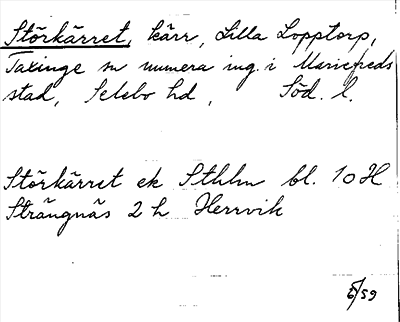 Störkärret, kärr, Lilla Lopptorp,
Taxinge sn numera ing. i Mariefreds
stad, Selebo hd, Söd. l.
Störkärret ek Sthlm bl. 10 H
Strängnäs 2 h Herrvik
6/59